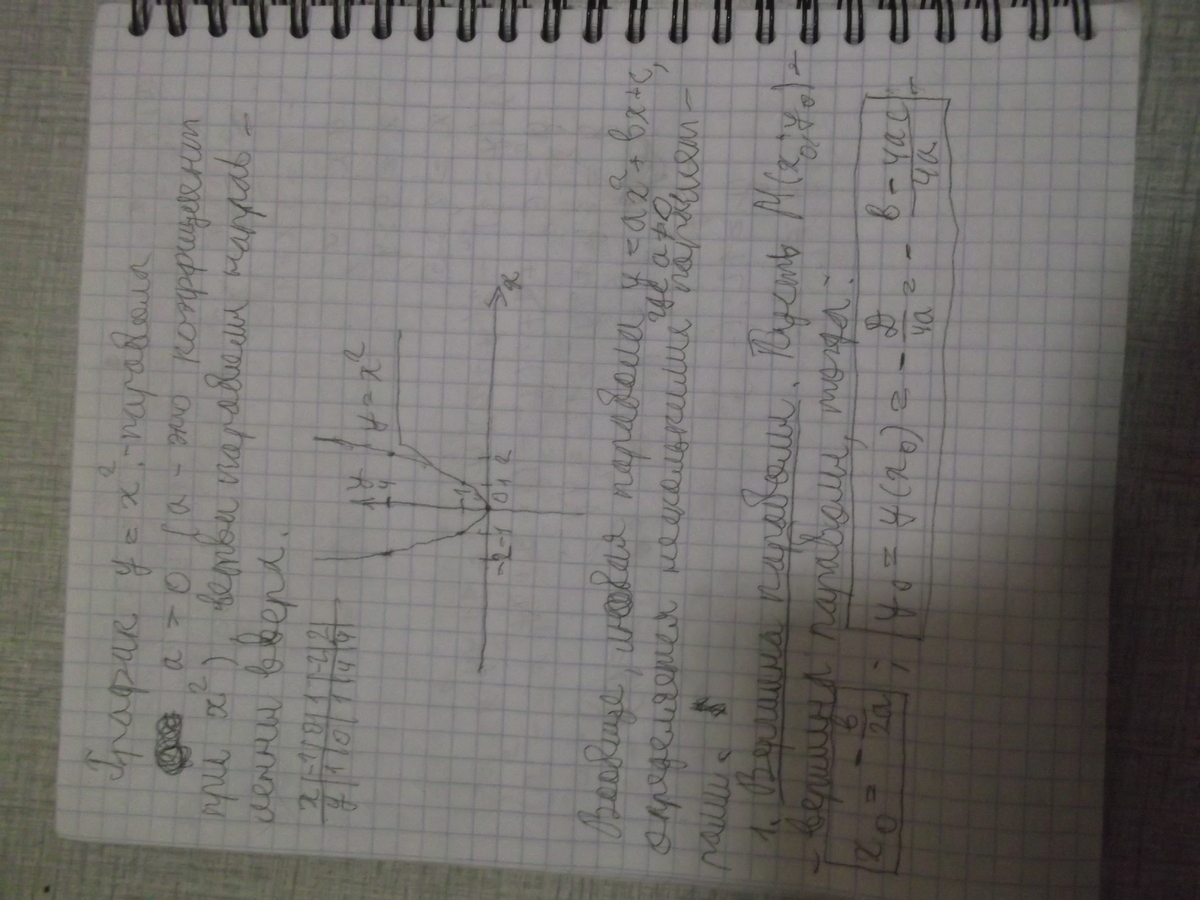 График y = x². - парабола
a > 0 (a - это коэффициент
при x²) ветви параболы направ-
лены вверх.
x | -1 | 0 | 1 | -2 | 2
y | 1 | 0 | 1 | 4 | 4
y
y = x²
4
1
-2 -1 0 1 2
x
Вообще, любая парабола y = ax² + bx + c,
где a≠0
определяется несколькими парамет-
рами.
1. Вершина параболы. Пусть M(x₀; y₀) -
- вершина параболы, тогда:
x₀ = - b/2a ; y₀ = y(x₀) = - D/4a = - b - 4ac/4a